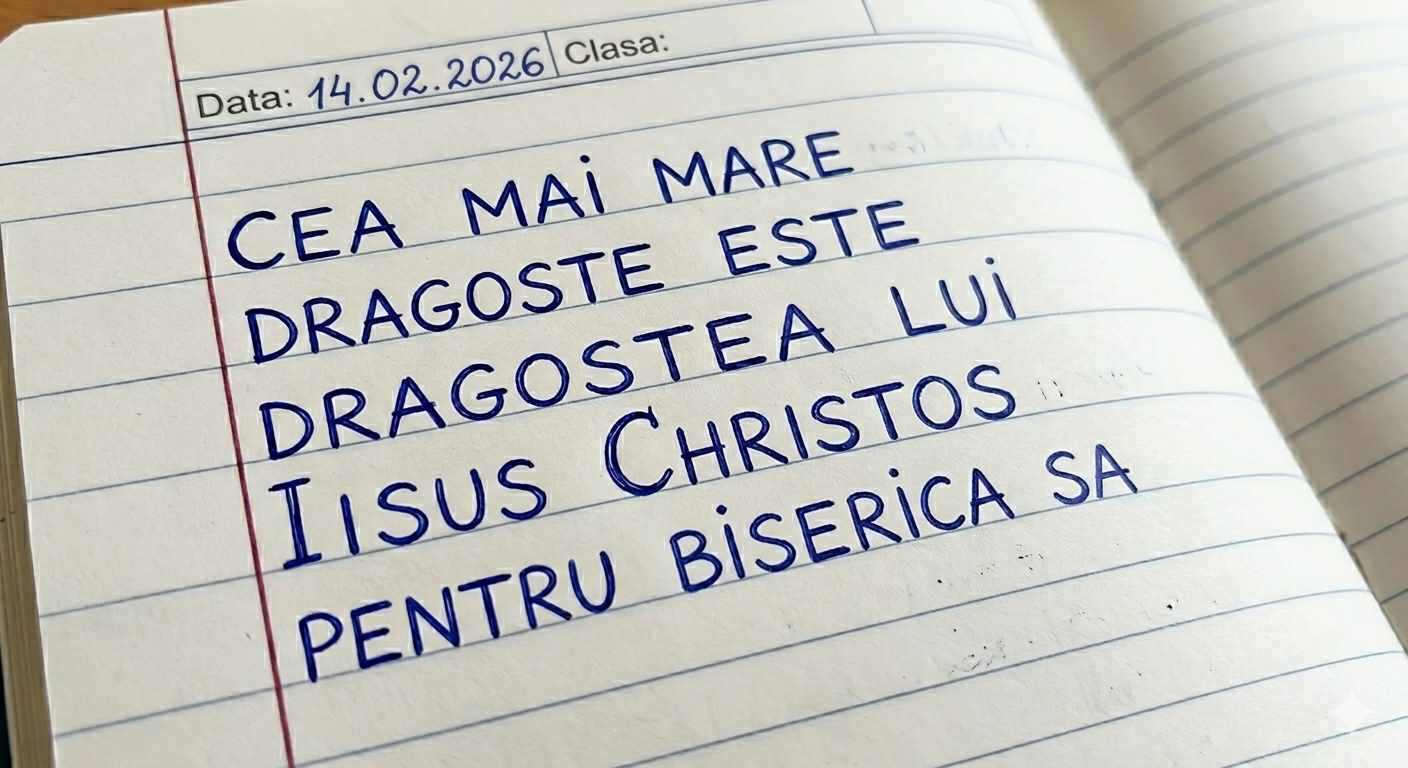 Data: 14.02.2026 Clasa:
CEA MAi MARE
DRAGOSTE ESTE
DRAGOSTEA LUi
IISUS CHRISTOS
PENTRU BiSERiCA SA